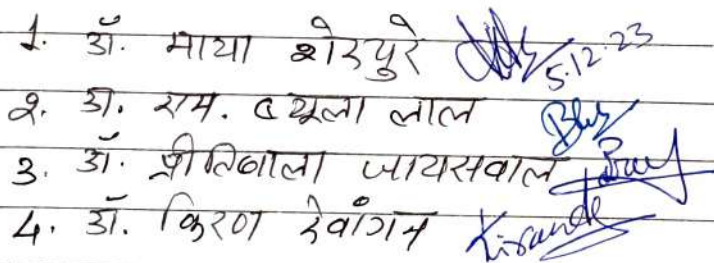 1. डॉ. माया शेरपुरे 5.12.23
2. डॉ. एम. बबूला लाल
3. डॉ. प्रीतिबाला जायसवाल
4. डॉ. किरण देवांगन